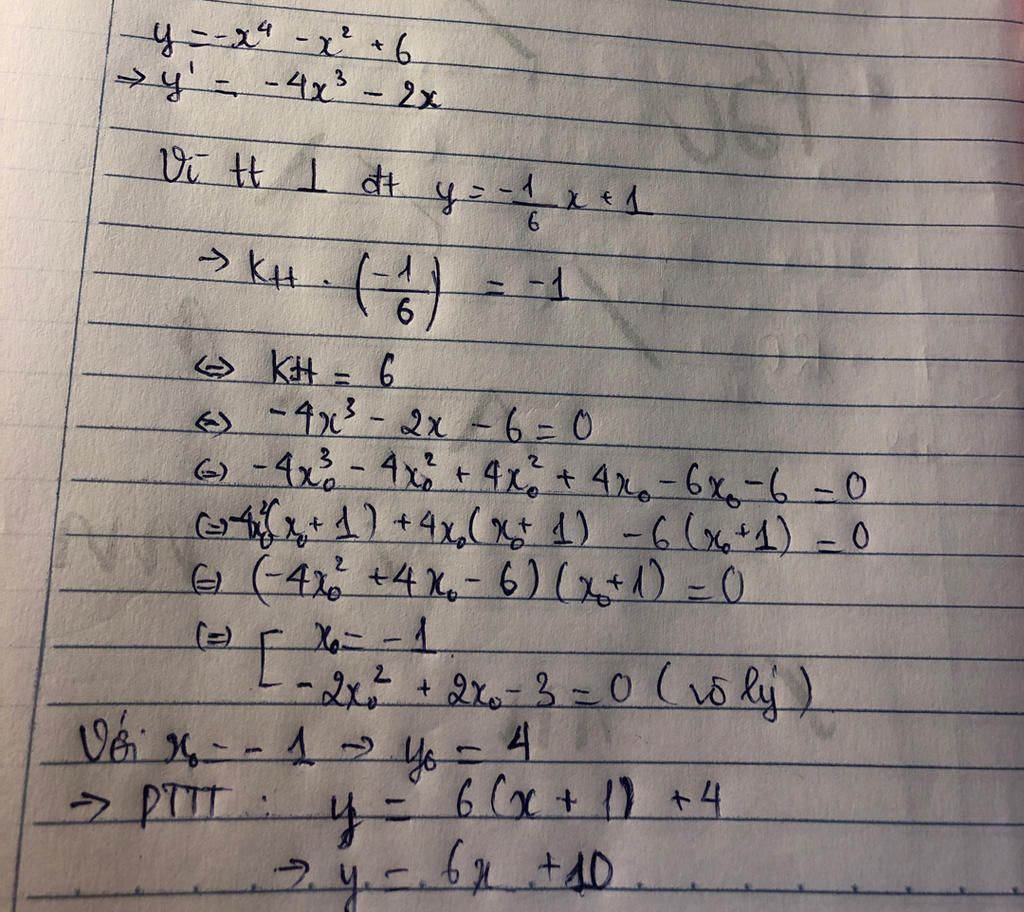 y = -x⁴ - x² + 6
→ y' = -4x³ - 2x
Vì tt ⊥ đt y = -1/6 x + 1
→ Ktt . (-1/6) = -1
⇔ Ktt = 6
⇔ -4x³ - 2x - 6 = 0
⇔ -4x₀³ - 4x₀² + 4x₀² + 4x₀ - 6x₀ - 6 = 0
⇔ -4x₀²(x₀ + 1) + 4x₀(x₀ + 1) - 6(x₀ + 1) = 0
⇔ (-4x₀² + 4x₀ - 6)(x₀ + 1) = 0
⇔ [ x₀ = -1
-2x₀² + 2x₀ - 3 = 0 (vô lý)
Với x₀ = -1 → y₀ = 4
→ PTTT : y = 6(x + 1) + 4
→ y = 6x + 10